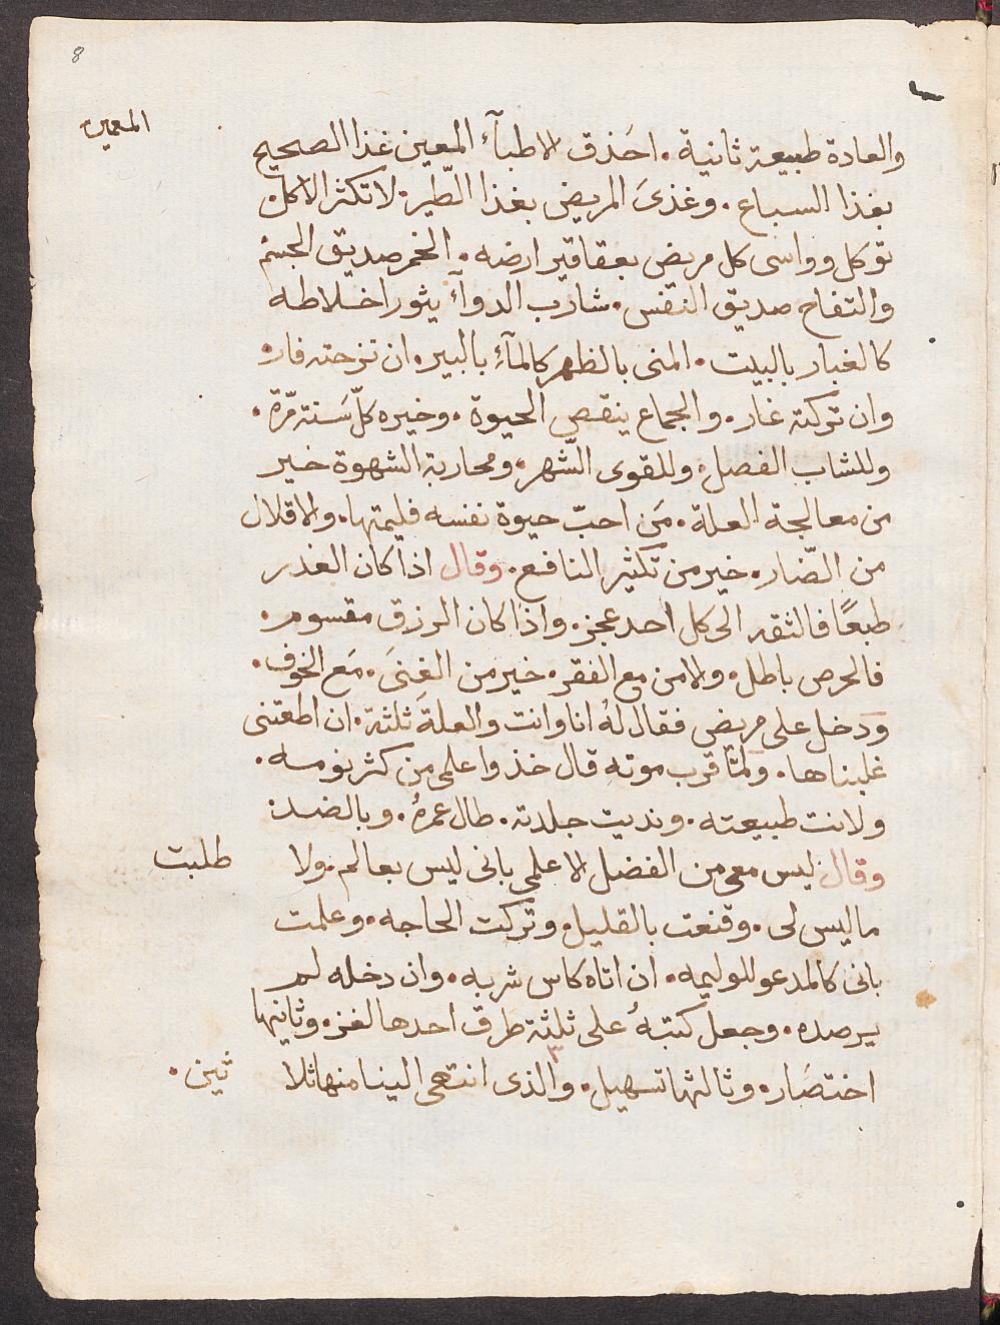 8
المعين
والعادة طبيعة ثانية. احَذق الاطبآء المعين غذا الصحيح
بغذا السباع. وغذىَ المريض بغذا الطّير. لا تكثر الاكل
توكل وواسى كل مريض بعقاقير ارضه. الخمر صديق الجسم
والتفاح صديق النفس. شارب الدوآء يثور اخلاطه
كالغبار بالبيت. المنى بالظهر كالمآءِ بالبير. ان نزحته فار.
وان تركته غار. والجماع ينقص الحيوة. وخيره كلّ سَنة مّرة.
وللشاب الفصل. وللقوى الشّهر. ومحاربة الشهوة خير
من معالجة العلة. مَن احبّ حيوة نفسه فليمتها. والاقلال
من الضّار. خير من تكثير النافع. وقال اذا كان الغدر
طبعًا فالثقه الى كل احد عجز. واذا كان الرزق مقسوم.
فالحرص باطل. والامن مع الفقر. خير من الغِنىَ. مَع الخوف.
ودخل على مريض فقال لهُ انا وانت والعلة ثلثة. ان اطعتنى
غلبناها. ولمّا قرب موته قال خذوا علمى من كثر نومه.
ولانت طبيعته. ونديت جلدته. طال عمرهُ. وبالضد:
وقال ليس معى من الفضل الا علمى بانى ليس بعالم. ولا طلبت
ما ليس لى. وقنعت بالقليل. وتركت الحاجه. وعلمت
بانى كالمدعو للوليمه. ان اتاه كاس شربه. وان دخله لم
يرصده. وجعل كتبهُ على ثلثة طرق احدها لغز. وثانيها
اختصَار. وثالثها تسهيل. والذى انتهى الينا منها ثلا ثين.